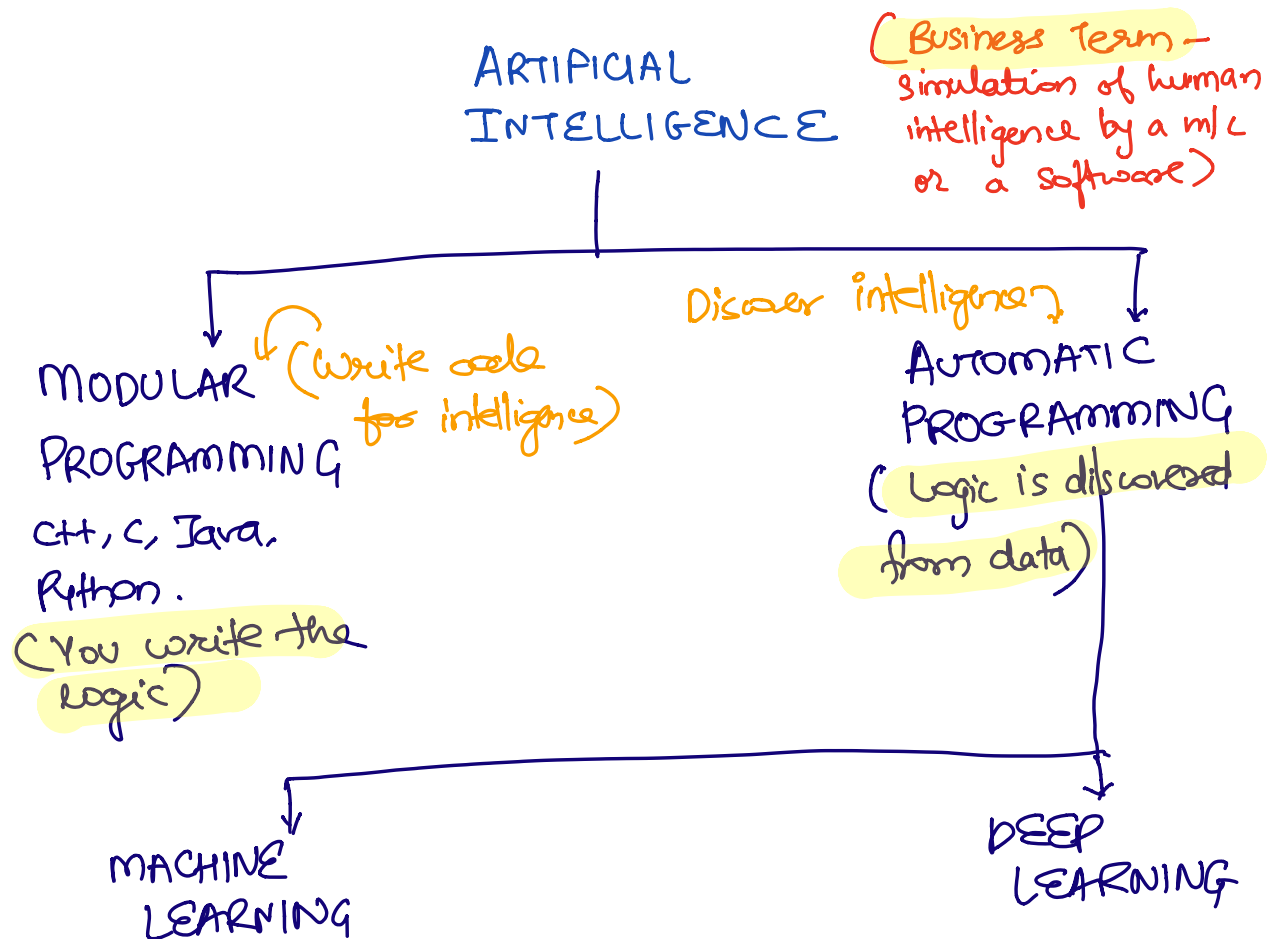 ARTIFICIAL
INTELLIGENCE
(Business Term –
simulation of human
intelligence by a m/c
or a software)
Discover intelligence
(write code
for intelligence)
MODULAR
PROGRAMMING
C++, C, Java,
Python.
(You write the
Logic)
AUTOMATIC
PROGRAMMING
(Logic is discovered
from data)
MACHINE
LEARNING
DEEP
LEARNING